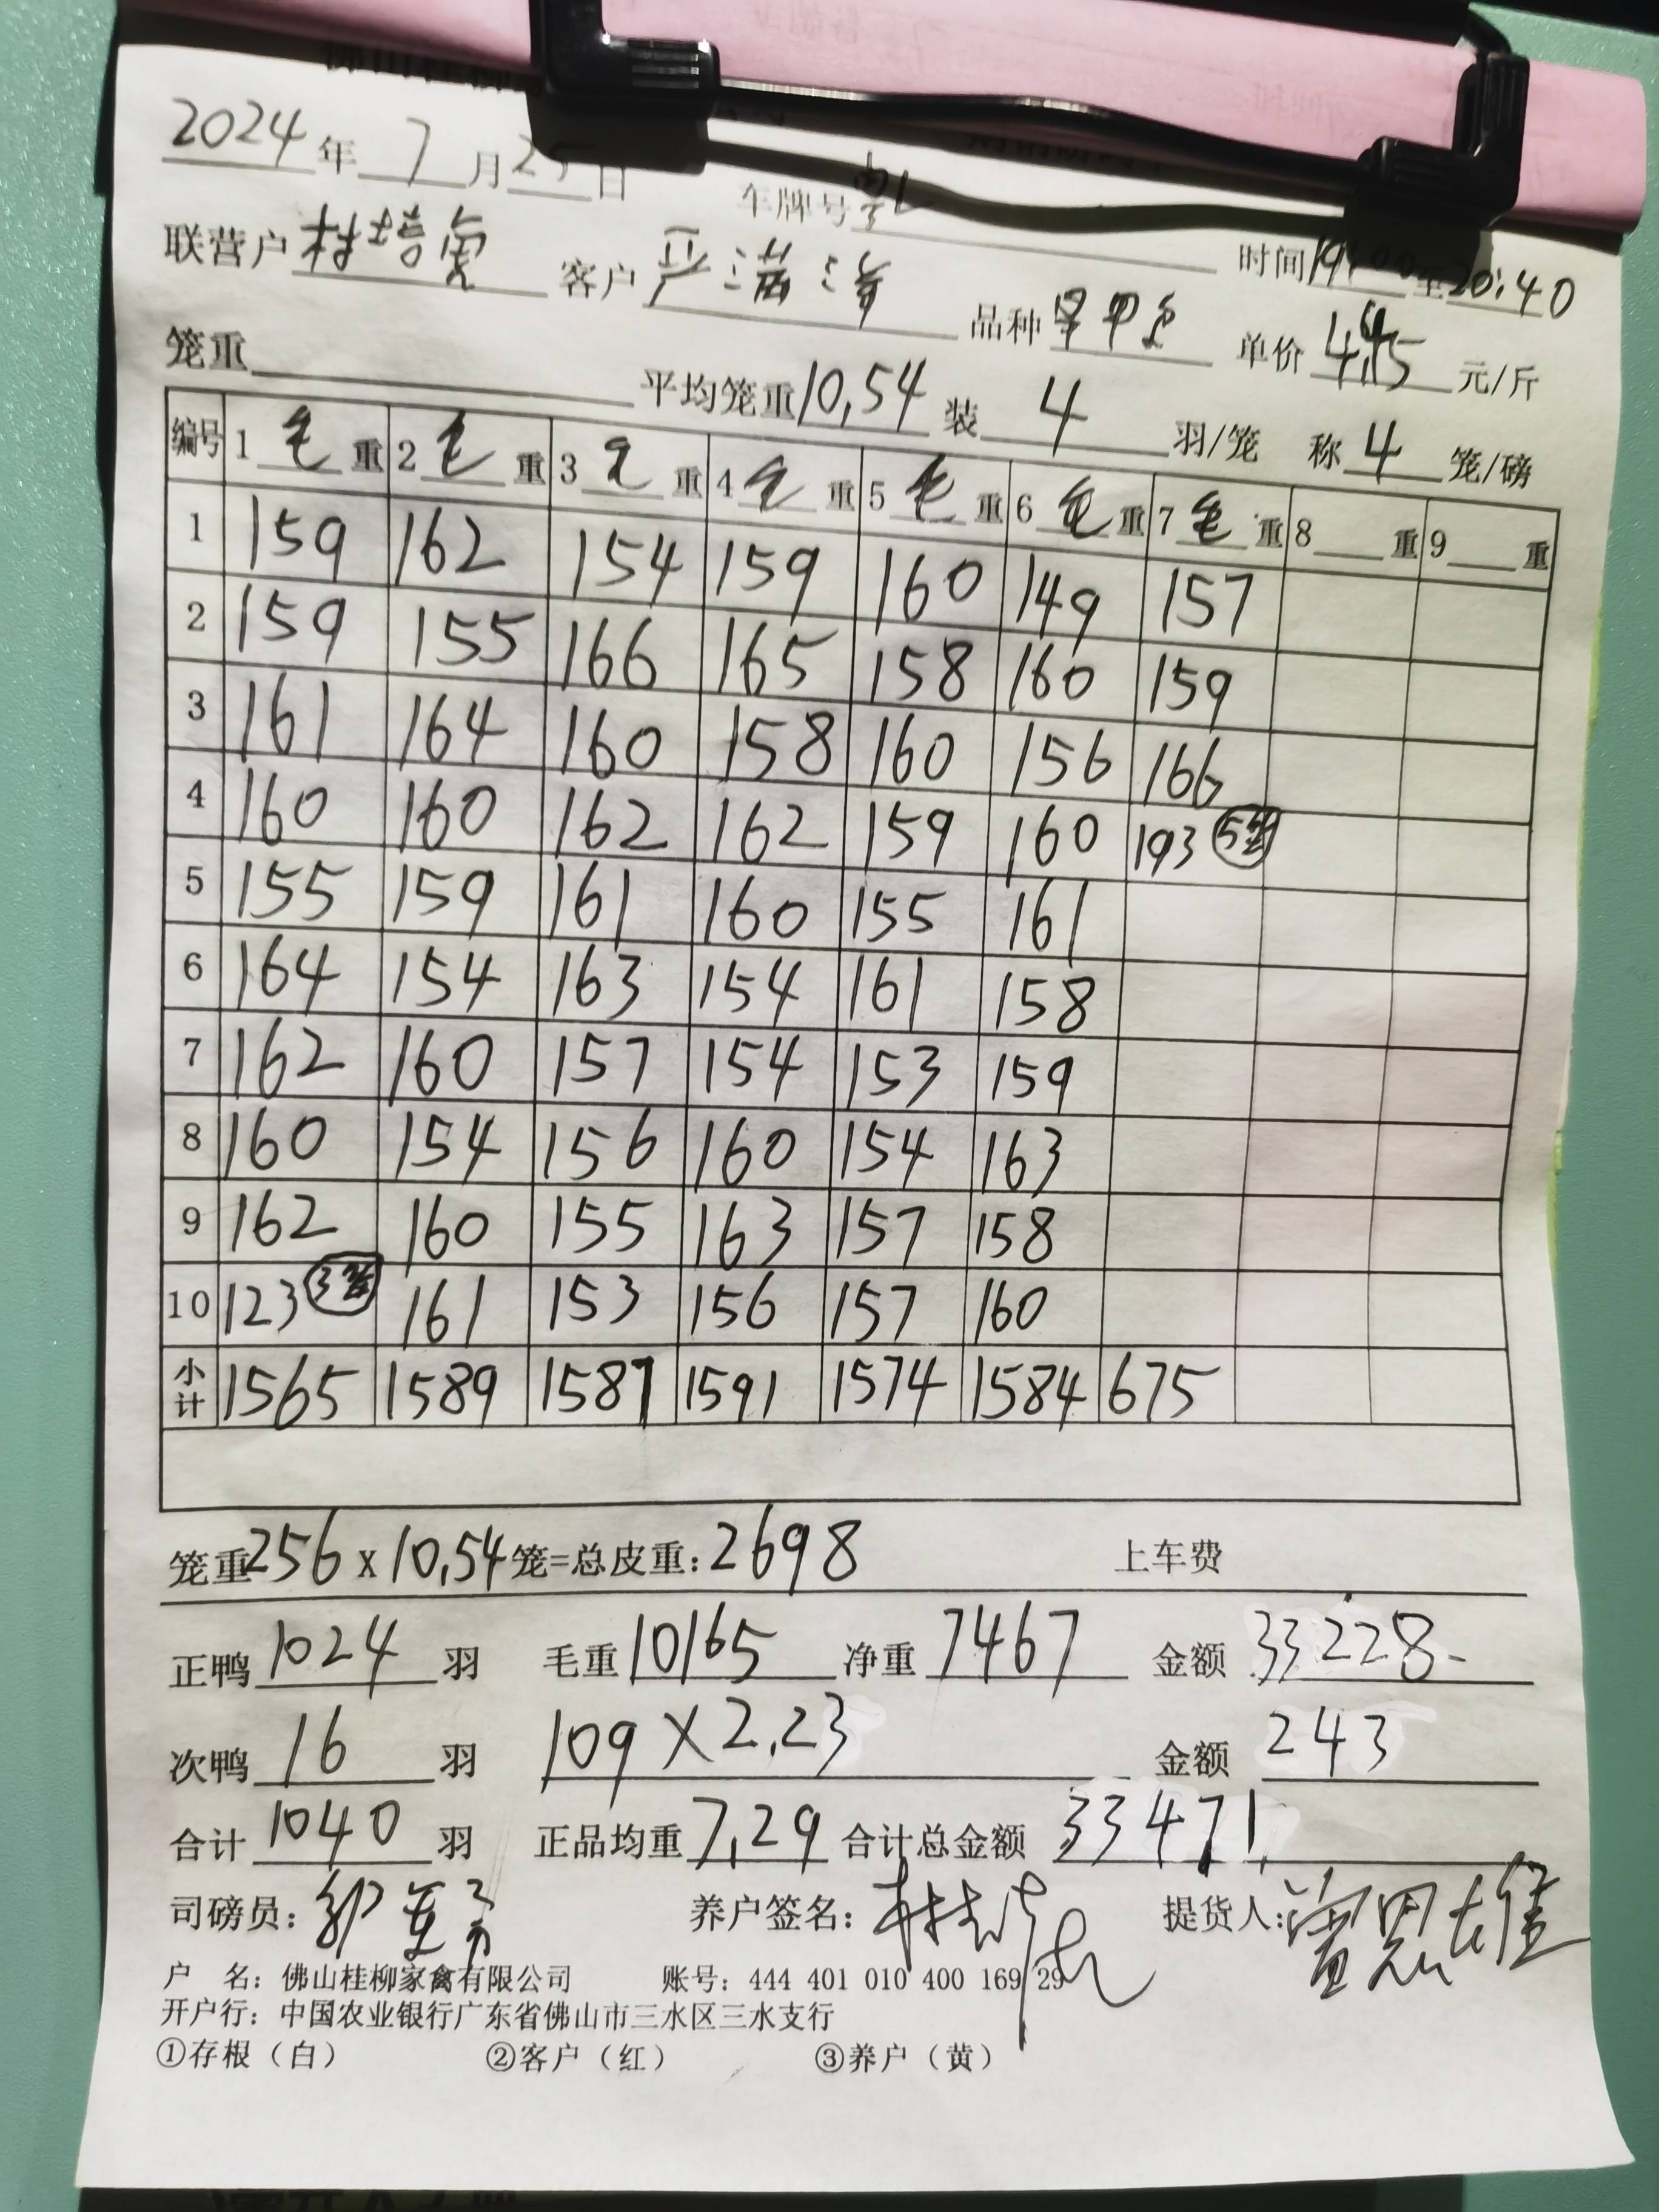 佛山桂柳
2024年 7月25日 车牌号
联营户 客户 严满 时间19:00至20:40
笼重 平均笼重10.54 装 4 羽/笼 品种 单价4.45元/斤
称 4 笼/磅
编号 1毛重 2毛重 3毛重 4毛重 5毛重 6毛重 7毛重 8 重 9 重
1 159 162 154 159 160 149 157
2 159 155 166 165 158 160 159
3 161 164 160 158 160 156 166
4 160 160 162 162 159 160 193 5笼
5 155 159 161 160 155 161
6 164 154 163 154 161 158
7 162 160 157 154 153 159
8 160 154 156 160 154 163
9 162 160 155 163 157 158
10 123 3笼 161 153 156 157 160
小计 1565 1589 1587 1591 1574 1584 675
笼重256 x 10.54笼=总皮重:2698 上车费
正鸭 1024 羽 毛重10165 净重 7467 金额 33228-
次鸭 16 羽 109 X 2.23 金额 243
合计 1040 羽 正品均重 7.29 合计总金额 33471
司磅员: 养户签名: 提货人:
户 名: 佛山桂柳家禽有限公司 账号: 444 401 010 400 169 29
开户行: 中国农业银行广东省佛山市三水区三水支行
①存根(白) ②客户(红) ③养户(黄)